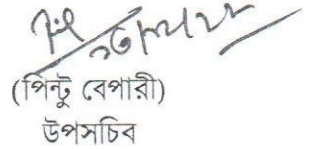 (পিন্টু বেপারী)
উপসচিব